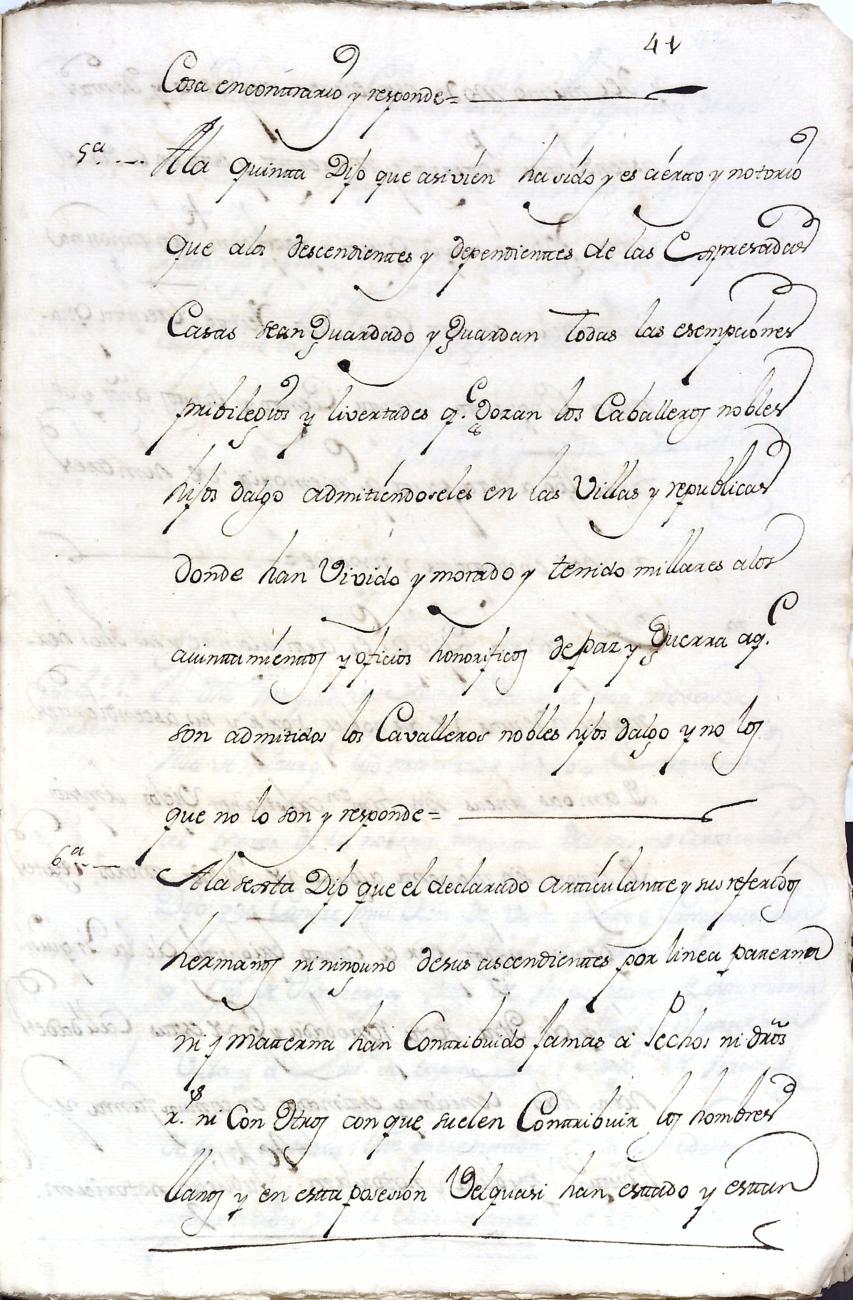 41
Cosa encontrario y responde=
5ª Ala quinta Dijo que asivien ha sido y es cierto y notorio
que alos descendientes y dependientes de las Expresadas
Casas sean Guardado y Guardan todas las esempciones
pribilegios y livertades q.e Gozan los Caballeros nobles
hijos dalgo admitiendoseles en las Villas y republicas
donde han Vivido y morado y tenido millares alos
aiuntamientos y oficios honorificos de paz y Guerra aq.e
son admitidos los Cavalleros nobles hijos dalgo y no los
que no lo son y responde=
6ª Ala sesta Dijo que el declarado articulante y sus referidos
hermanos ni ninguno desus ascendientes por linea paterna
ni Materna han Contribuido jamas a Pechos ni dros
r.s ni Con Otros con que suelen Contribuir los hombres
llanos y en esta posesion Velquasi han estado y estan